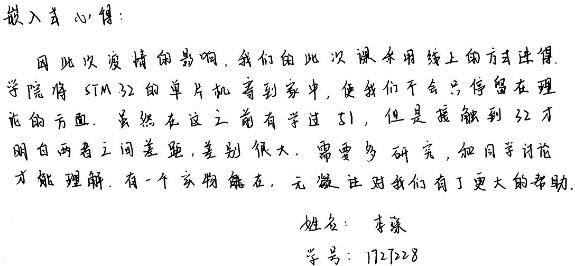 嵌入式心得:
因此次疫情的影响,我们的此次课采用线上的方式进行.
学院将 STM32的单片机寄到家中,使我们不会只停留在理
论的方面. 虽然在这之前有学过51,但是接触到32才
明白两者之间差距,差别很大. 需要多研究,和同学讨论
才能理解. 有一个实物能在,无疑让对我们有了更大的帮助.
姓名: 李
学号: 1727228